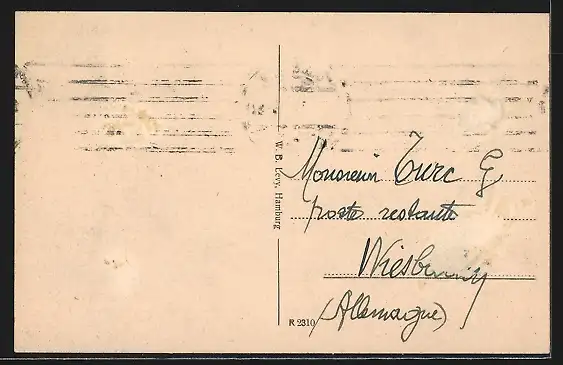 Monsieur Turc G
poste restante
Wiesbaden
(Allemagne)
W. B. Levy, Hamburg
R 2310